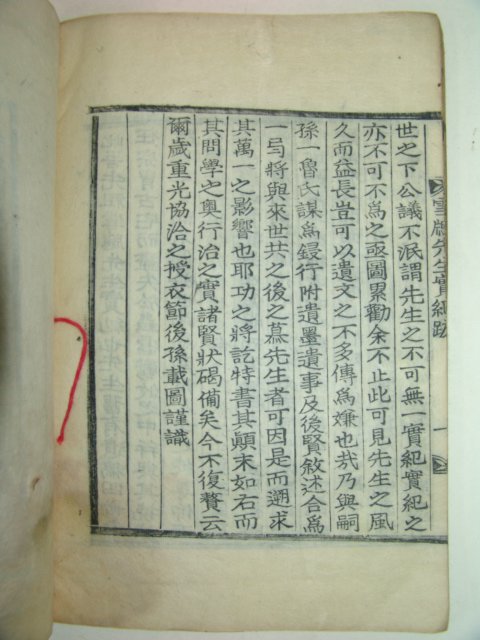 雪牕先生實紀跋 一
世之下公議不泯謂先生之不可無一實紀實紀之
亦不可不爲之亟圖累勸余不止此可見先生之風
久而益長豈可以遺文之不多傳爲嫌也哉乃與嗣
孫一魯氏謀爲鋟行附遺墨遺事及後賢敘述合爲
一弓將與來世共之後之慕先生者可因是而遡求
其萬一之影響也耶功之將訖特書其顚末如右而
其問學之奥行治之實諸賢狀碣備矣今不復贅云
爾歲重光協洽之授衣節後孫載圖謹識